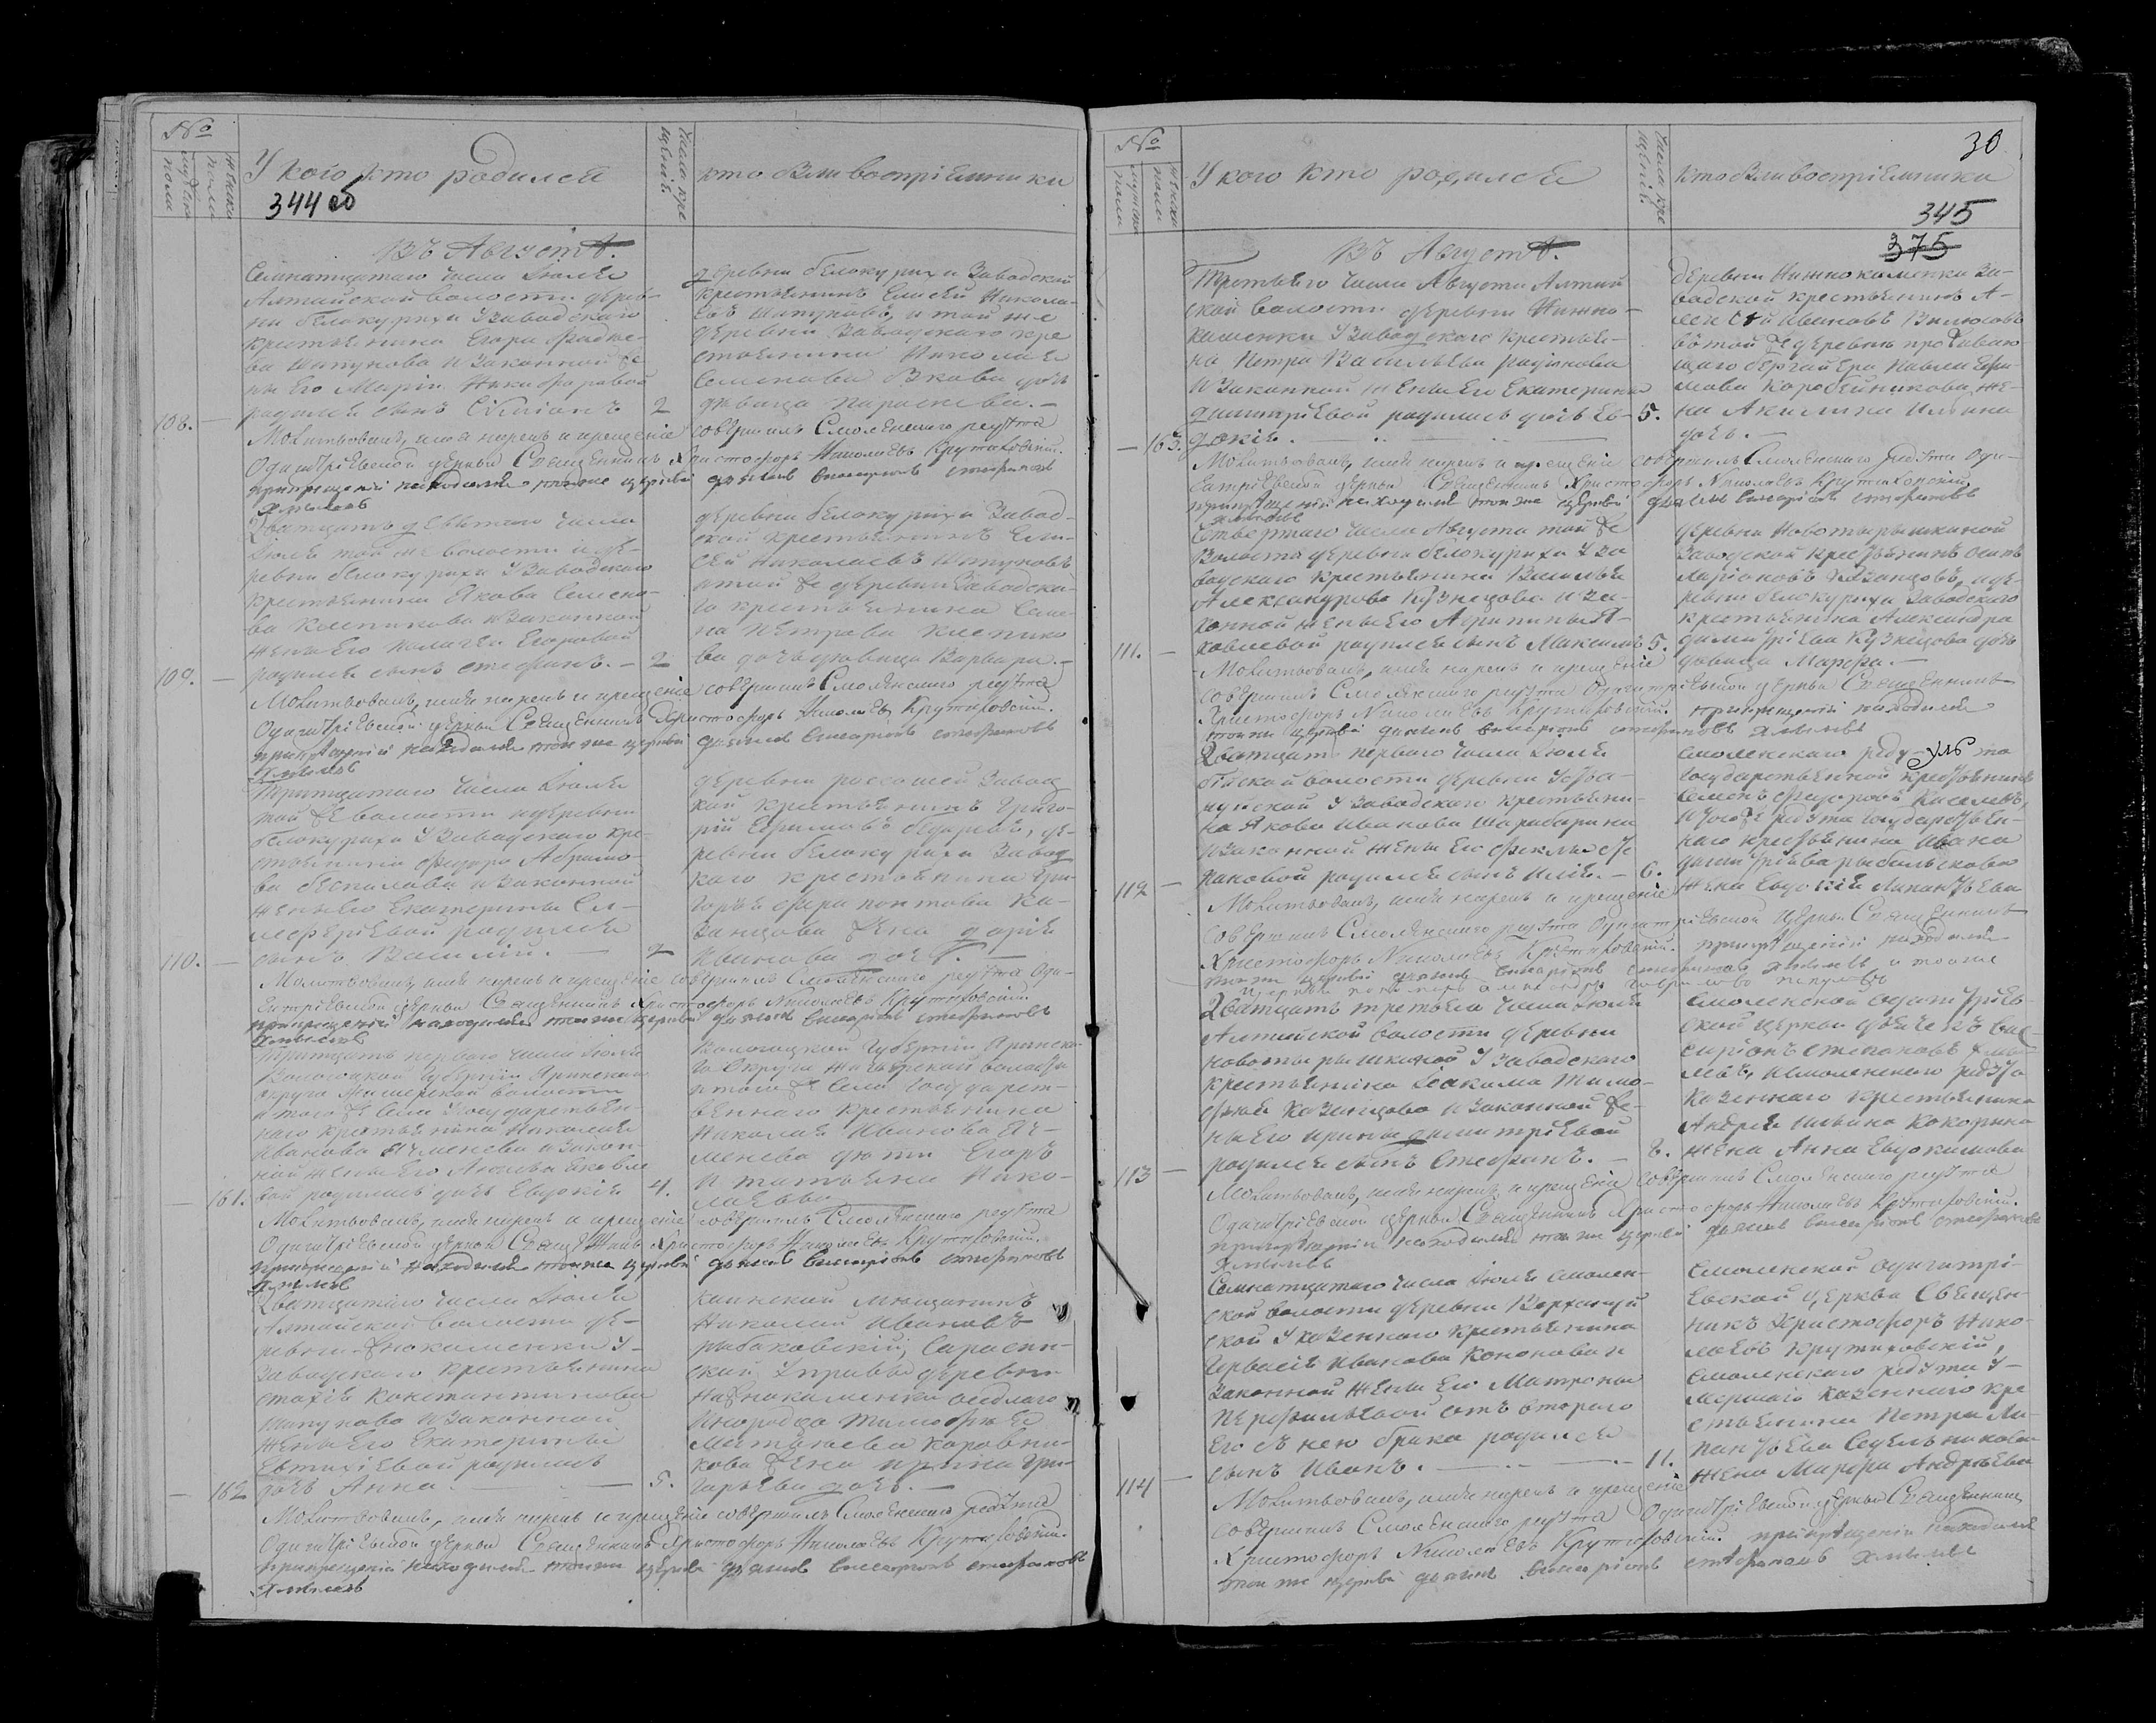 №
мужска пола
женска пола
У кого кто родился
Числа крещенія
кто были воспріемники
344 об
Въ Августѣ.
Семнатцатаго числа Іюля
Алтайской волости дерев-
ни белокурихи Узаводскаго
крестьянина Егора Фадѣе-
ва Шатунова изаконной же
ны Его Маріи Никифоровой
108. — родился сынъ Симіонъ 2
деревни белокурихи Заводской
крестьянинъ Елисей Никола-
евъ Шатуновъ, итой же
деревни Заводскаго кре
стьянина Николая
Семенова Зкова дочь
девица Параскева. —
Молитвовалъ, имя нарекъ и крещеніе совершилъ Смоленскаго редута
Одигитріевской церкви Священникъ Христофоръ Николаевъ Крутиковскій.
при крещеніи находился тоя же церкви дьячекъ виссаріонъ стефановъ
хмылевъ
Дватцать девятаго числа
Іюля той же волости иде-
ревни белокурихи Узаводскаго
крестьянина Якова Семено-
ва Клепикова изаконной
жены Его Палагеи Егоровой
109. — родился сынъ стефанъ. — 2
деревни белокурихи Завод-
ской крестьянинъ Ели-
сей Николаевъ Шатуновъ
итой же деревни Заводска-
го крестьянина Семе-
на Петрова Клепико
ва дочь девица Варвара. —
Молитвовалъ, имя нарекъ и крещеніе совершилъ Смоленскаго редута
Одигитріевской церкви Священникъ Христофоръ Николаевъ Крутиковскій.
при крещеніи находился тоя же церкви дьячекъ виссаріонъ стефановъ
хмылевъ
Тритцатаго числа Іюля
той же волости идеревни
белокурихи Узаводскаго кре-
стьянина Федора Абрамо-
ва беспалова изаконной
жены Его Екатерины Ел-
леферіевой родился
110. — сынъ Василій. — 2
деревни россошей Завод
кой крестьянинъ Григо-
рій Ефимовъ бедаревъ, де-
ревни белокурихи Завод
каго крестьянина Гри-
горья Ферапонтова Ка-
занцова жена дарія
Иванова дочь. —
Молитвовалъ, имя нарекъ и крещеніе совершилъ Смоленскаго редута Оди-
гитріевской церкви Священникъ Христофоръ Николаевъ Крутиковскій.
при крещеніи находился тоя же церкви дьячекъ виссаріонъ стефановъ
хмылевъ
Тритцать перваго числа Іюля
Вологоцкой Губерніи Яринскаго
округа Жишерской волости
и того же села Угосударствен-
наго крестьянина Николая
Иванова Ячменева изакон
ной жены Его Яковле
— 161. вой родилась дочь Евдокія 4.
Вологоцкой Губерніи Яринска-
го Округа Жишерской волости
итого же села Государст-
веннаго крестьянина
Николая Иванова Яч-
менева дети Егоръ
и татьяна Нико-
лаевы
Молитвовалъ, имя нарекъ и крещеніе совершилъ Смоленскаго редута
Одигитріевской церкви Священникъ Христофоръ Николаевъ Крутиковскій.
при крещеніи находился тоя же церкви дьячекъ виссаріонъ стефановъ
хмылевъ
Дватцатаго числа Іюля
Алтайской волости де-
ревни Нижнокаменки У-
заводскаго крестьянина
стахія Константинова
Шатунова изаконной
жены Его Екатерины
Евтихіевой родилась
— 162 дочь Анна. — 5.
каинской мещанинъ
Николай Ивановъ
рыбаковскій, Сарасин-
ской Управы деревни
Нижнокаменки оседлаго
Инородца Тимофея
Матвеева Коровни-
кова жена ирина Гри-
горьева дочь. —
Молитвовалъ, имя нарекъ и крещеніе совершилъ Смоленскаго редута
Одигитріевской церкви Священникъ Христофоръ Николаевъ Крутиковскій.
при крещеніи находился тоя же церкви дьячекъ виссаріонъ стефановъ
хмылевъ
30
№
мужска пола
женска пола
У кого кто родился
Числа крещенія
кто были воспріемники
345
375
Въ Августѣ.
Третьяго числа Августа Алтай
ской волости деревни Нижно-
каменки Узаводскаго крестьяни-
на Петра Васильева Радіонова
изаконной жены Его Екатерины
Димитріевой родилась дочь Ев- 5.
— 163. докія. —
деревни Нижнокаменки За-
водской крестьянинъ А-
лексѣй Ивановъ Вилюсовъ
втой же деревнѣ проживаю
щаго берггайера Павла Ефи-
мова Коробейникова же-
на Акилина Ильина
дочь. —
Молитвовалъ, имя нарекъ и крещеніе совершилъ Смоленскаго редута Оди-
гитріевской церкви Священникъ Христофоръ Николаевъ Крутиковскій
при крещеніи находился тоя же церкви дьячекъ виссаріонъ стефановъ
хмылевъ
Четвертаго числа Августа той же
Волости деревни белокурихи Уза
водскаго крестьянина Василья
Александрова Кузнецова иза-
конной жены Его Агрипины Я-
111. — ковлевой родился сынъ Максимъ 5.
деревни Новотырышкиной
Заводской крестьянинъ Осипъ
Ларіоновъ Казанцовъ, иде-
ревни белокурихи Заводскаго
крестьянина Александра
димитріева Кузнецова дочь
девица Марфа. —
Молитвовалъ, имя нарекъ и крещеніе
совершилъ Смоленскаго редута Одигитріевской церкви Священникъ
Христофоръ Николаевъ Крутиковскій. при крещеніи находился
тоя же церкви дьячекъ виссаріонъ стефановъ хмылевъ
Дватцать перваго числа Іюля
бійской волости деревни Усть-
Узаводскаго крестьяни-
на Якова Иванова Шарабарина
изаконной жены Его Феклы Сте
112 — пановой родился сынъ Илія. — 6.
Смоленскаго редута
Государственной крестьянинъ
Семенъ Федоровъ Киселевъ,
итогоже редута Государствен-
наго крестьянина Ивана
димитріева рыбальскова
жена Евдокія Лапантьева
Молитвовалъ, имя нарекъ и крещеніе
совершилъ Смоленскаго редута Одигитріевской церкви Священникъ
Христофоръ Николаевъ Крутиковскій. при крещеніи находился
тоя же церкви дьячекъ виссаріонъ стефановъ хмылевъ и тояже
церкви пономарь александръ
Дватцать третьяго числа Іюля
Алтайской волости деревни
новотырышкиной Узаводскаго
крестьянина Іоакима Тимо-
фѣя Казанцова изаконной же-
ны Его Ирины димитріевой
113 — родился сынъ Стефанъ. — 8.
Смоленской Одигитріев-
ской церкви дьячекъ вис-
саріонъ степановъ хмы-
левъ, Ismоленскаго редута
Казеннаго крестьянина
Андрея Ильина Кокорина
жена Анна Евдокимова
Молитвовалъ, имя нарекъ и крещеніе совершилъ Смоленскаго редута
Одигитріевской церкви Священникъ Христофоръ Николаевъ Крутиковскій.
при крещеніи находился тоя же церкви дьячекъ виссаріонъ стефановъ
хмылевъ
Семнатцатаго числа Іюля Смолен-
ской волости деревни Верхъ
ской Указеннаго крестьянина
Гервасія Иванова Кононова и
законной жены Его Матроны
Перфильевой отъ втораго
Его съ нею брака родился
114 — сынъ Иванъ. — 11.
Смоленской Одигитрі-
евской церкви Священ-
никъ Христофоръ Нико-
лаевъ Крутиковскій,
Смоленскаго редута У-
мершаго Казеннаго кре
стьянина Петра Ла-
пантьева Седельникова
жена Марфа Андреева
Молитвовалъ, имя нарекъ и крещеніе
совершилъ Смоленскаго редута Одигитріевской церкви Священникъ
Христофоръ Николаевъ Крутиковскій. при крещеніи находился
тоя же церкви дьячекъ виссаріонъ стефановъ хмылевъ